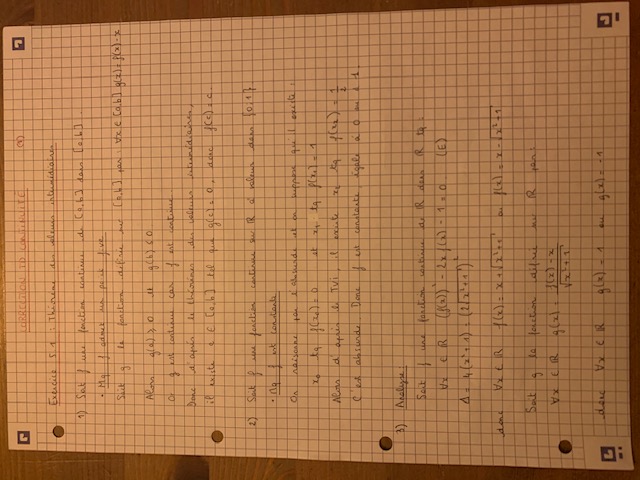 CORRECTION TD CONTINUITE
Exercice 5.1 : Théorème des valeurs intermédiaires
1) Soit f une fonction continue de [a,b] dans [a,b].
• Mq f admet un point fixe
Soit g la fonction définie sur [a,b] par : ∀x ∈ [a,b] g(x) = f(x) - x
Alors g(a) ≥ 0 et g(b) ≤ 0.
Or g est continue car f est continue.
Donc d'après le théorème des valeurs intermédiaires,
il existe c ∈ [a,b] tel que g(c) = 0, donc f(c) = c.
2) Soit f une fonction continue sur ℝ à valeur dans {0;1}.
• Mq f est constante
On raisonne par l'absurde et on suppose qu'il existe :
x₀ tq f(x₀) = 0 et x₁ tq f(x₁) = 1
Alors d'après le TVI, il existe x₂ tq f(x₂) = 1/2
C'est absurde. Donc f est constante, égale à 0 ou à 1.
3) Analyse :
Soit f une fonction continue de ℝ dans ℝ tq :
∀x ∈ ℝ (f(x))² - 2x f(x) - 1 = 0 (E)
Δ = 4(x²+1) = (2√(x²+1))²
donc ∀x ∈ ℝ f(x) = x + √(x²+1) ou f(x) = x - √(x²+1)
Soit g la fonction définie sur ℝ par :
∀x ∈ ℝ g(x) = (f(x) - x)/√(x²+1)
donc ∀x ∈ ℝ g(x) = 1 ou g(x) = -1